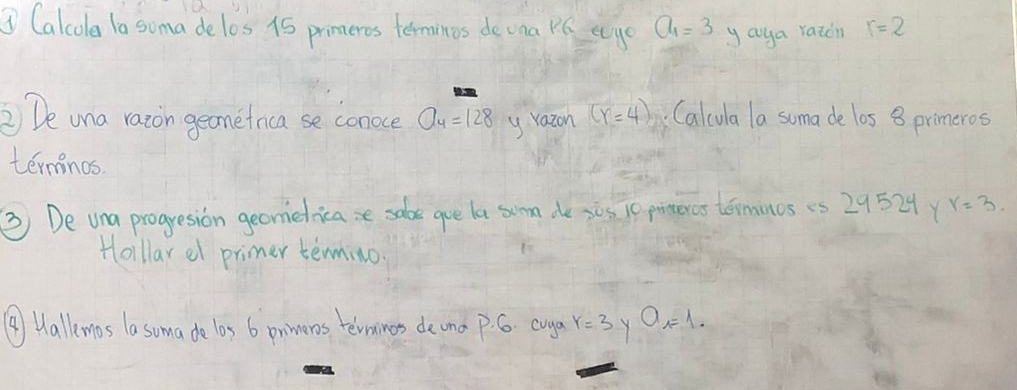 ① Calcula la suma de los 15 primeros términos de una PG cuyo a₁=3 y cuya razón r=2
② De una razón geométrica se conoce a₄=128 y razon (r=4). Calcula la suma de los 8 primeros
términos.
③ De una progresión geometrica se sabe que la suma de sus 10 primeros términos es 29524 y r=3.
Hallar el primer término.
④ Hallemos la suma de los 6 primeros términos de una P.G. cuya r=3 y a₁=1.